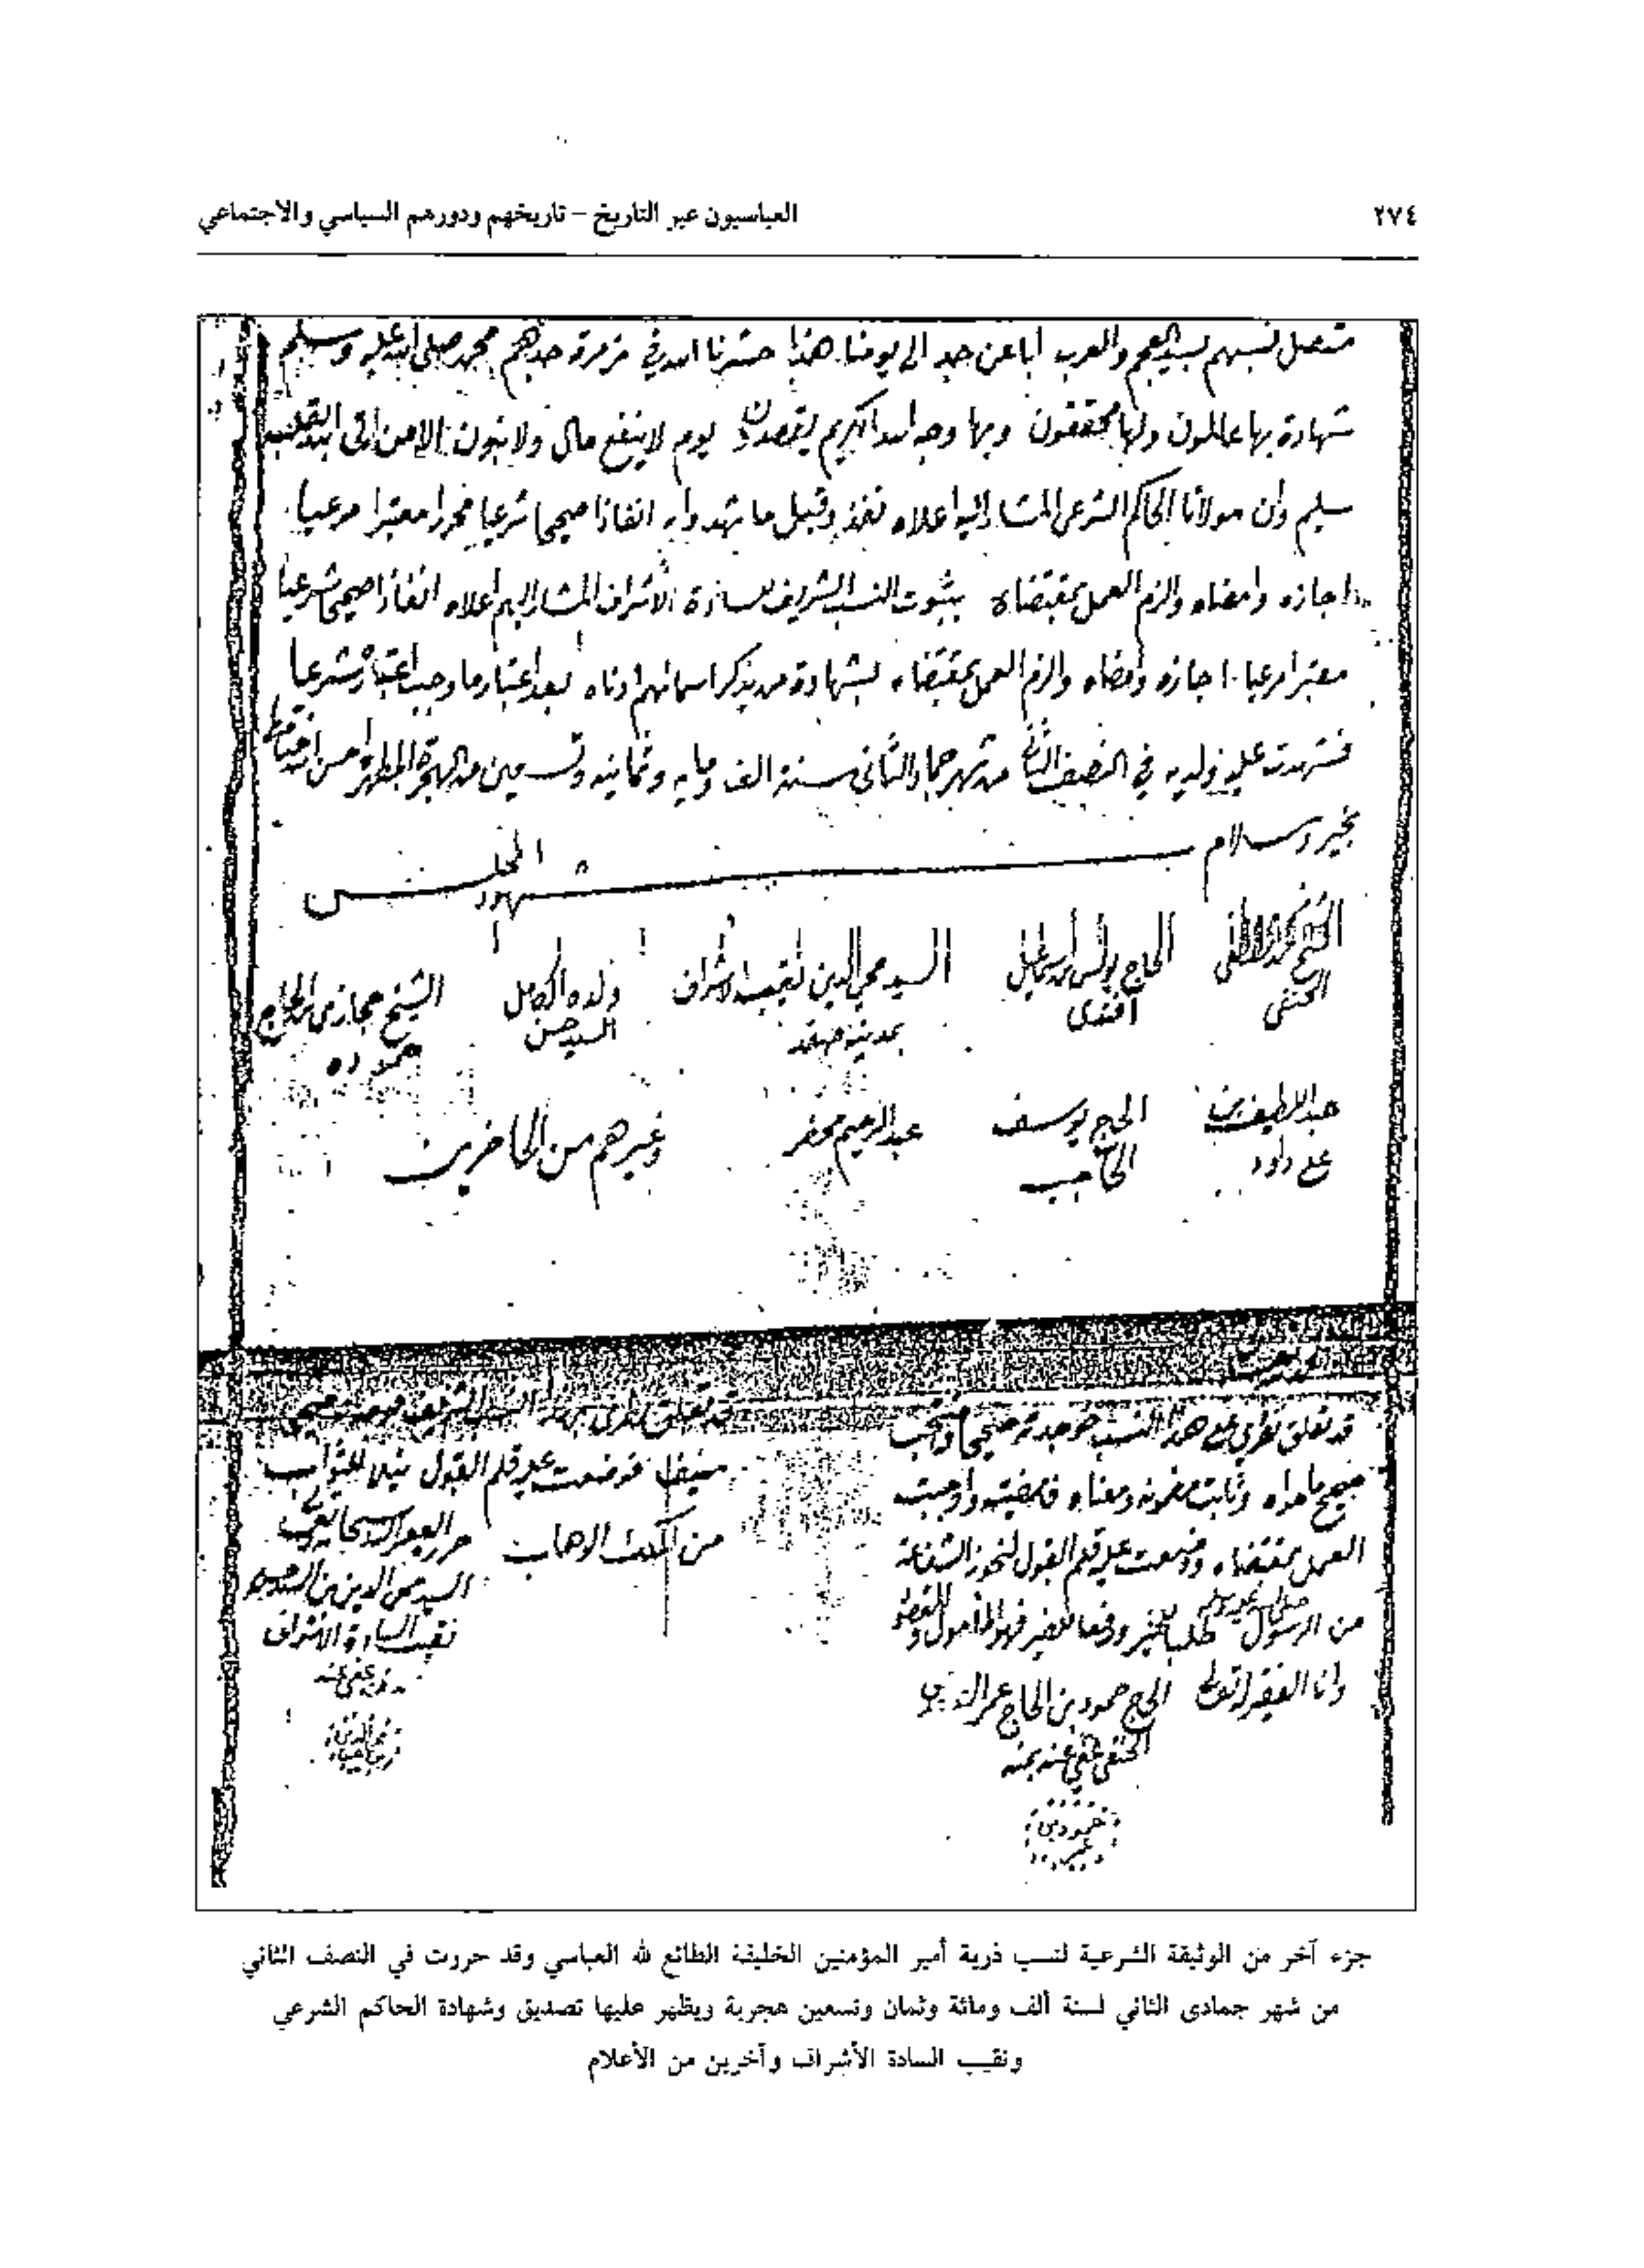 ٢٧٤
العباسيون عبر التاريخ – تاريخهم ودورهم السياسي والاجتماعي
متصل نسبهم بسيد العجم والعرب ابا عن جد الى يومنا هذا حشرنا الله في زمرة جدهم محمد صلى الله عليه وسلم
شهادة بها عالمون ولها محققون وبها وجه الله الكريم يقصدون يوم لا ينفع مال ولا بنون الا من اتى الله بقلب
سليم وان مولانا الحاكم الشرعي المشار اليه اعلاه نفذ وقبل ما شهدوا به انفاذا صحيحا شرعيا محررا معتبرا مرعيا
اجازه وامضاه والزم العمل بمقتضاه بثبوت النسب الشريف للسادة الاشراف المشار اليهم اعلاه انفاذا صحيحا شرعيا
معتبرا مرعيا اجازه وامضاه والزم العمل بمقتضاه بشهادة من يذكر اسمائهم ادناه بعد اعتبار ما وجب اعتباره شرعا
فشهدت عليه ولديه في النصف الثاني من شهر جماد الثاني سنة الف ومايه وثمانيه وتسعين من الهجرة المطهرة
بخير وسلام
شهود المجلس
الشيخ محمد
الحنفي
الحاج يونس بن اسماعيل
افندي
السيد محي الدين نقيب الاشراف
بمدينة صفد
ولده الكامل
السيد حسن
الشيخ حجازي الحاج
حموده
عبد اللطيف بن
علي داود
الحاج يوسف
الحاجب
عبد الرحيم جعفر
وغيرهم من الحاضرين
قد تعلق نظري على هذا النسب فوجدته صحيحا
صحيح ما حواه وثابت مضمونه ومعناه فامضيته واوجبت
العمل بمقتضاه ووضعت عليه قلم القبول لنحوز الشفاعة
من الرسول صلى الله عليه وسلم طلبا للخير ودفعا للضير فهو المأمول
وانا الفقير لله تعالى الحاج حمود بن الحاج عمر
الحنفي عفي عنه بمنه
حمود بن
عمر
قد تعلق نظري بهذا النسب الشريف فوجدته صحيح
منيفا فوضعت عليه قلم القبول نيلا للثواب
من الملك الوهاب
السيد محي الدين بن السيد
نقيب السادة الاشراف
عفي عنه
جزء آخر من الوثيقة الشرعية لنسب ذرية أمير المؤمنين الخليفة الطائع لله العباسي وقد حررت في النصف الثاني
من شهر جمادى الثاني لسنة ألف ومائة وثمان وتسعين هجرية ويظهر عليها تصديق وشهادة الحاكم الشرعي
ونقيب السادة الأشراف وآخرين من الأعلام